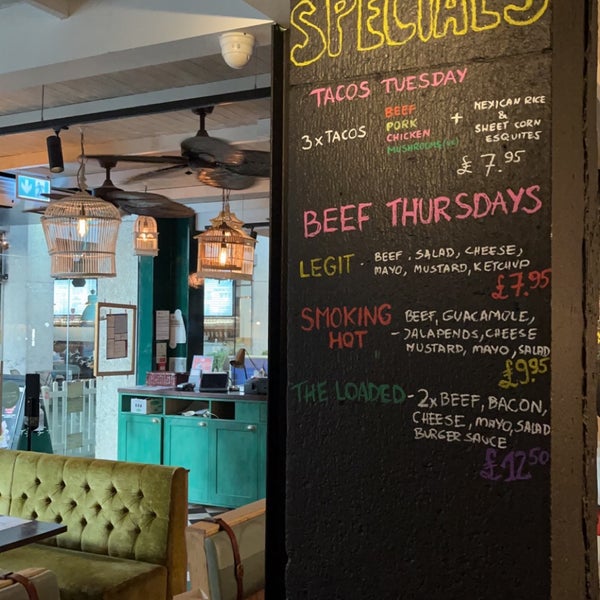 SPECIALS
TACOS TUESDAY
3 x TACOS
BEEF
PORK
CHICKEN
MUSHROOMS
+
MEXICAN RICE
&
SWEET CORN
ESQUITES
£7.95
BEEF THURSDAYS
LEGIT - BEEF, SALAD, CHEESE,
MAYO, MUSTARD, KETCHUP
£7.95
SMOKING
HOT
- BEEF, GUACAMOLE,
JALAPENOS, CHEESE
MUSTARD, MAYO, SALAD
£9.95
THE LOADED - 2x BEEF, BACON,
CHEESE, MAYO, SALAD
BURGER SAUCE
£12.50